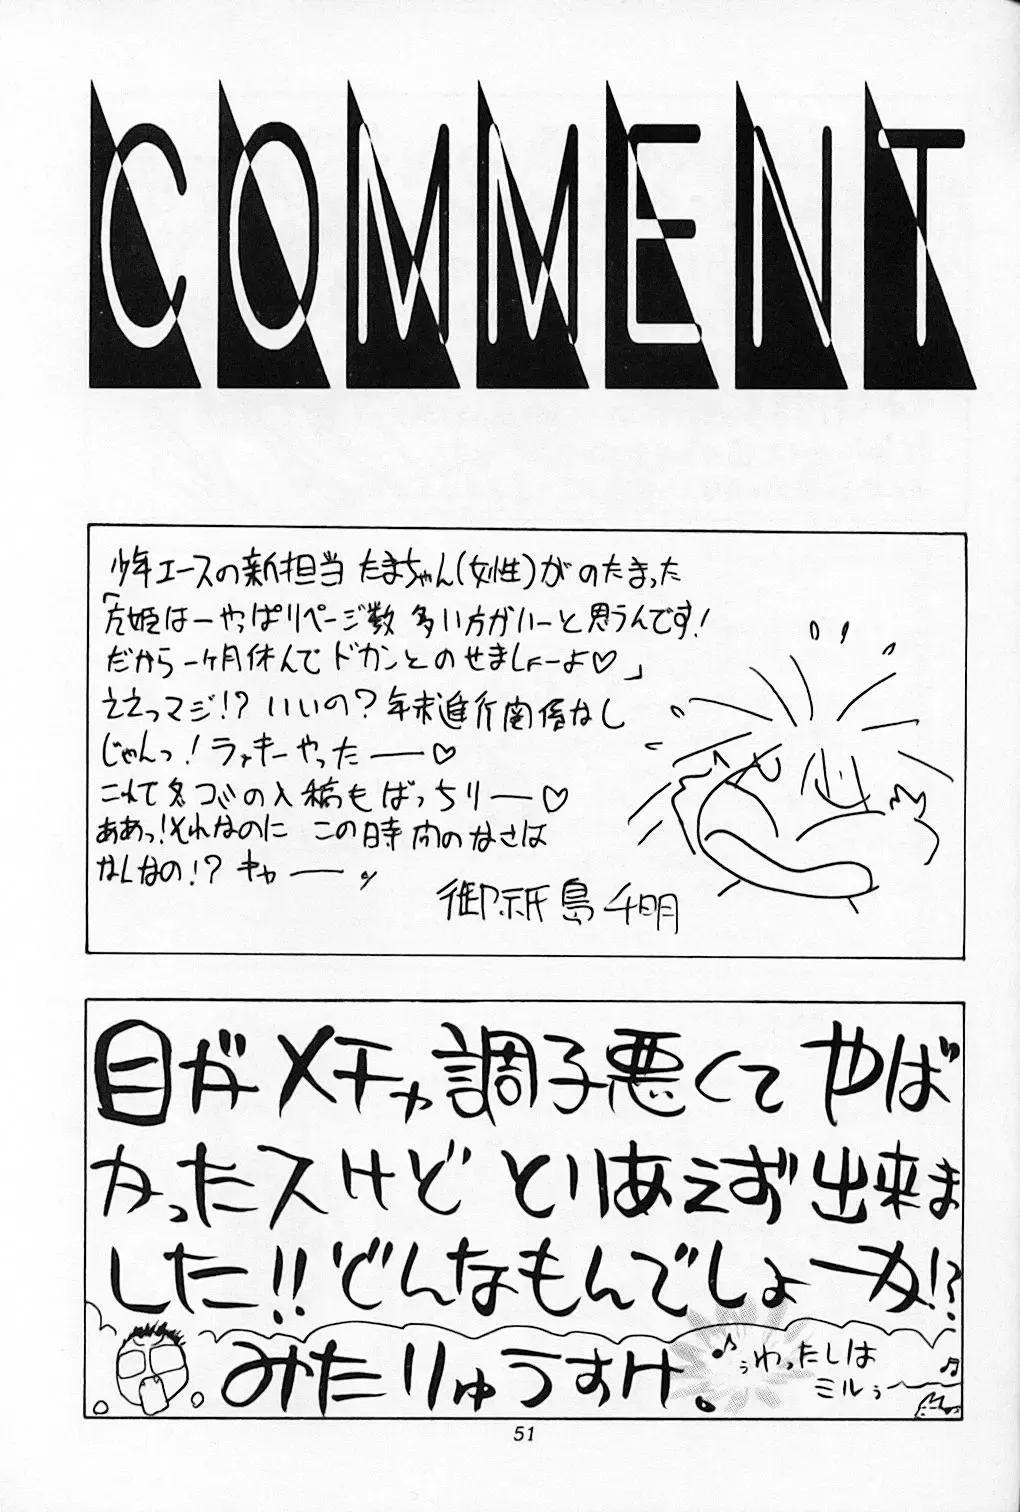 COMMENT
少年エースの新担当 たまちゃん(女性)がのたまった
「尤姫は一やっぱりページ数 多い方がいーと思うんです!
だから一ヶ月休んで ドカンとのせましょーよ♡」
ええっマジ!? いいの? 年末進行関係なし
じゃんっ! ラッキーやったー♡
これで冬コミの入稿もばっちりー♡
ああっ!それなのに この時間のなさは
なんなの!? キャー
御祇島千明
目がメチャ調子悪くて やば
かったスけど とりあえず出来ま
した!! どんなもんでしょーか!?
みたりゅうすけ
♪ぅわったしは
ミルぅ〜♫
51